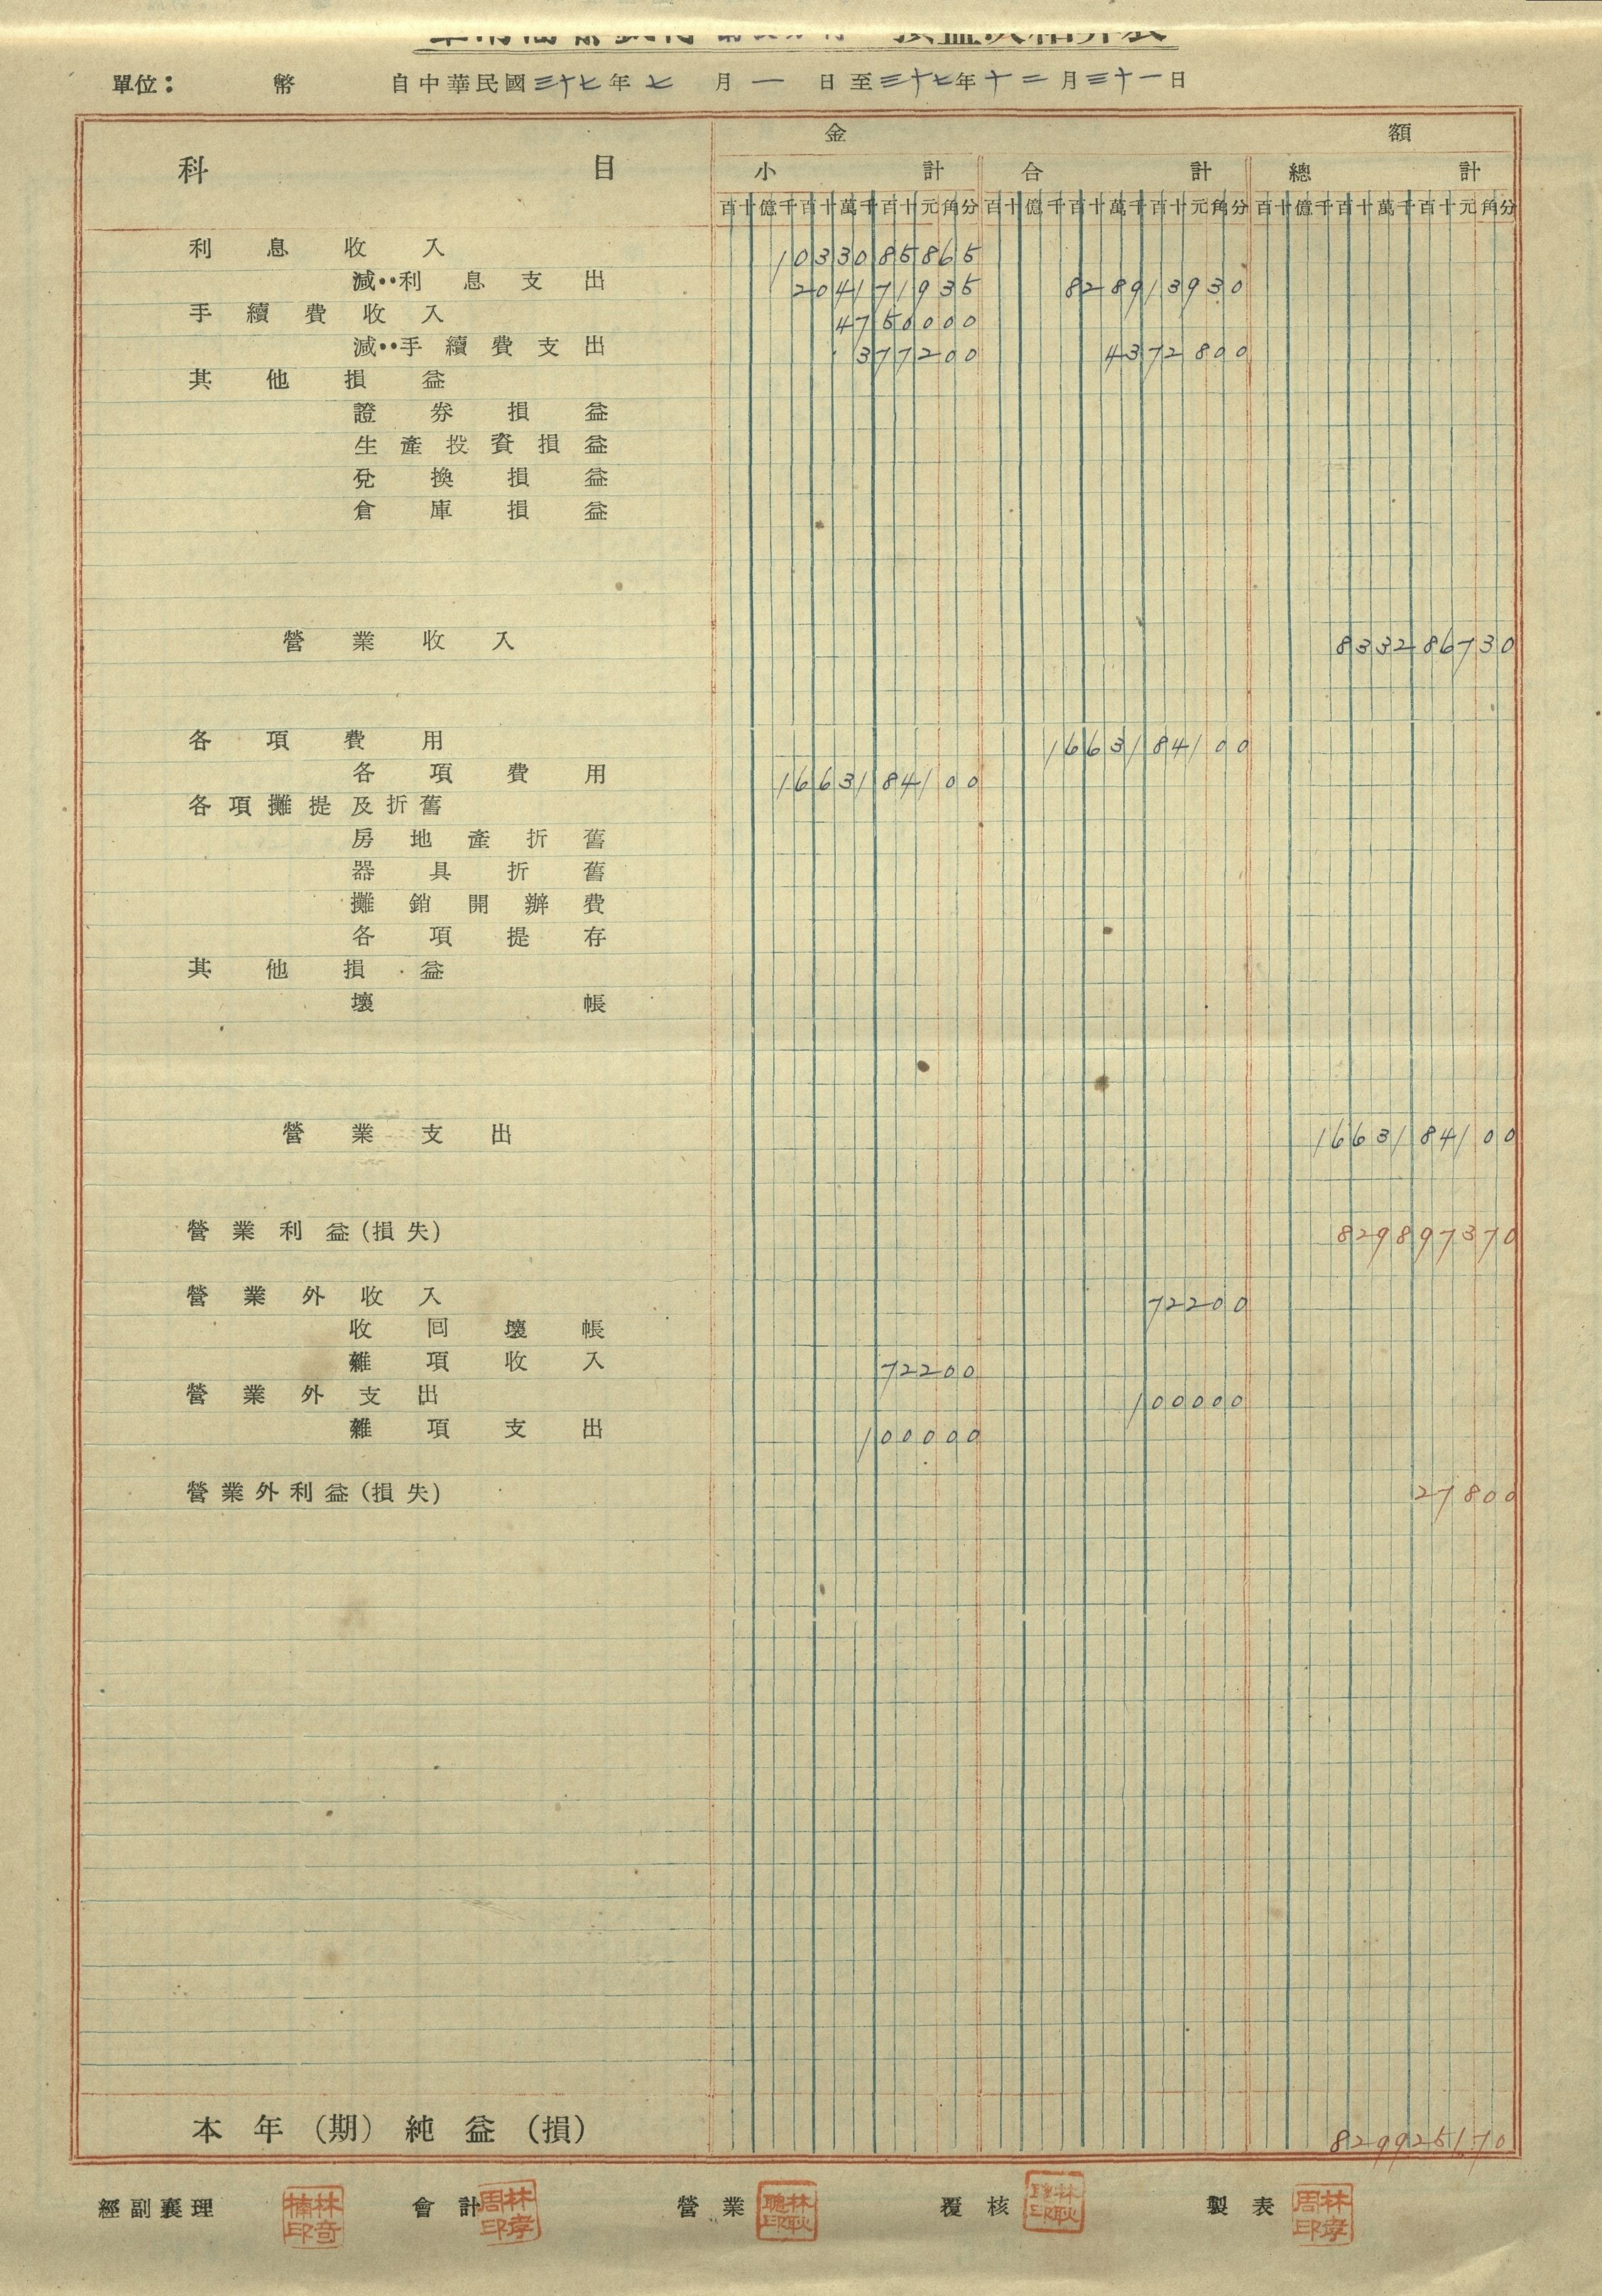 損益決結算表
單位： 幣 自中華民國三十七年七月一日至三十七年十二月三十一日
科目 金額
小計 合計 總計
百十億千百十萬千百十元角分 百十億千百十萬千百十元角分 百十億千百十萬千百十元角分
利息收入 1033085865
減：利息支出 204171935 828913930
手續費收入 4750000
減：手續費支出 377200 4372800
其他損益
證券損益
生產投資損益
兌換損益
倉庫損益
營業收入 833286730
各項費用 1663184100
各項費用 1663184100
各項攤提及折舊
房地產折舊
器具折舊
攤銷開辦費
各項提存
其他損益
壞帳
營業支出 1663184100
營業利益(損失) 829897370
營業外收入 72200
收回壞帳
雜項收入 72200
營業外支出 100000
雜項支出 100000
營業外利益(損失) 27800
本年(期)純益(損) 829925170
經副襄理 林奇楠印 會計 林孝周印 營業 林耿聰印 覆核 林耿聰印 製表 林孝周印